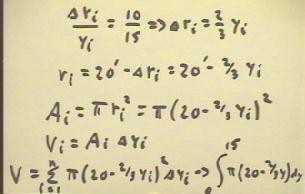 Δri/yi = 10/15 => Δri = 2/3 yi
ri = 20' - Δri = 20' - 2/3 yi
Ai = π ri² = π(20 - 2/3 yi)²
Vi = Ai Δyi
V = Σ_{i=1}^{n} π(20 - 2/3 yi)² Δyi -> ∫_0^15 π(20 - 2/3 y) dy